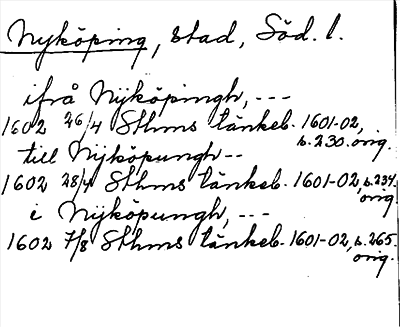 Nyköping, stad, Söd. l.
ifrå Nÿköpingh, ---
1602 26/4 Sthms tänkeb. 1601-02,
s. 230. orig.
till Nÿköpungh --
1602 28/4 Sthms tänkeb. 1601-02, s. 234.
orig.
i Nÿköpungh, ---
1602 7/8 Sthms tänkeb. 1601-02, s. 265.
orig.